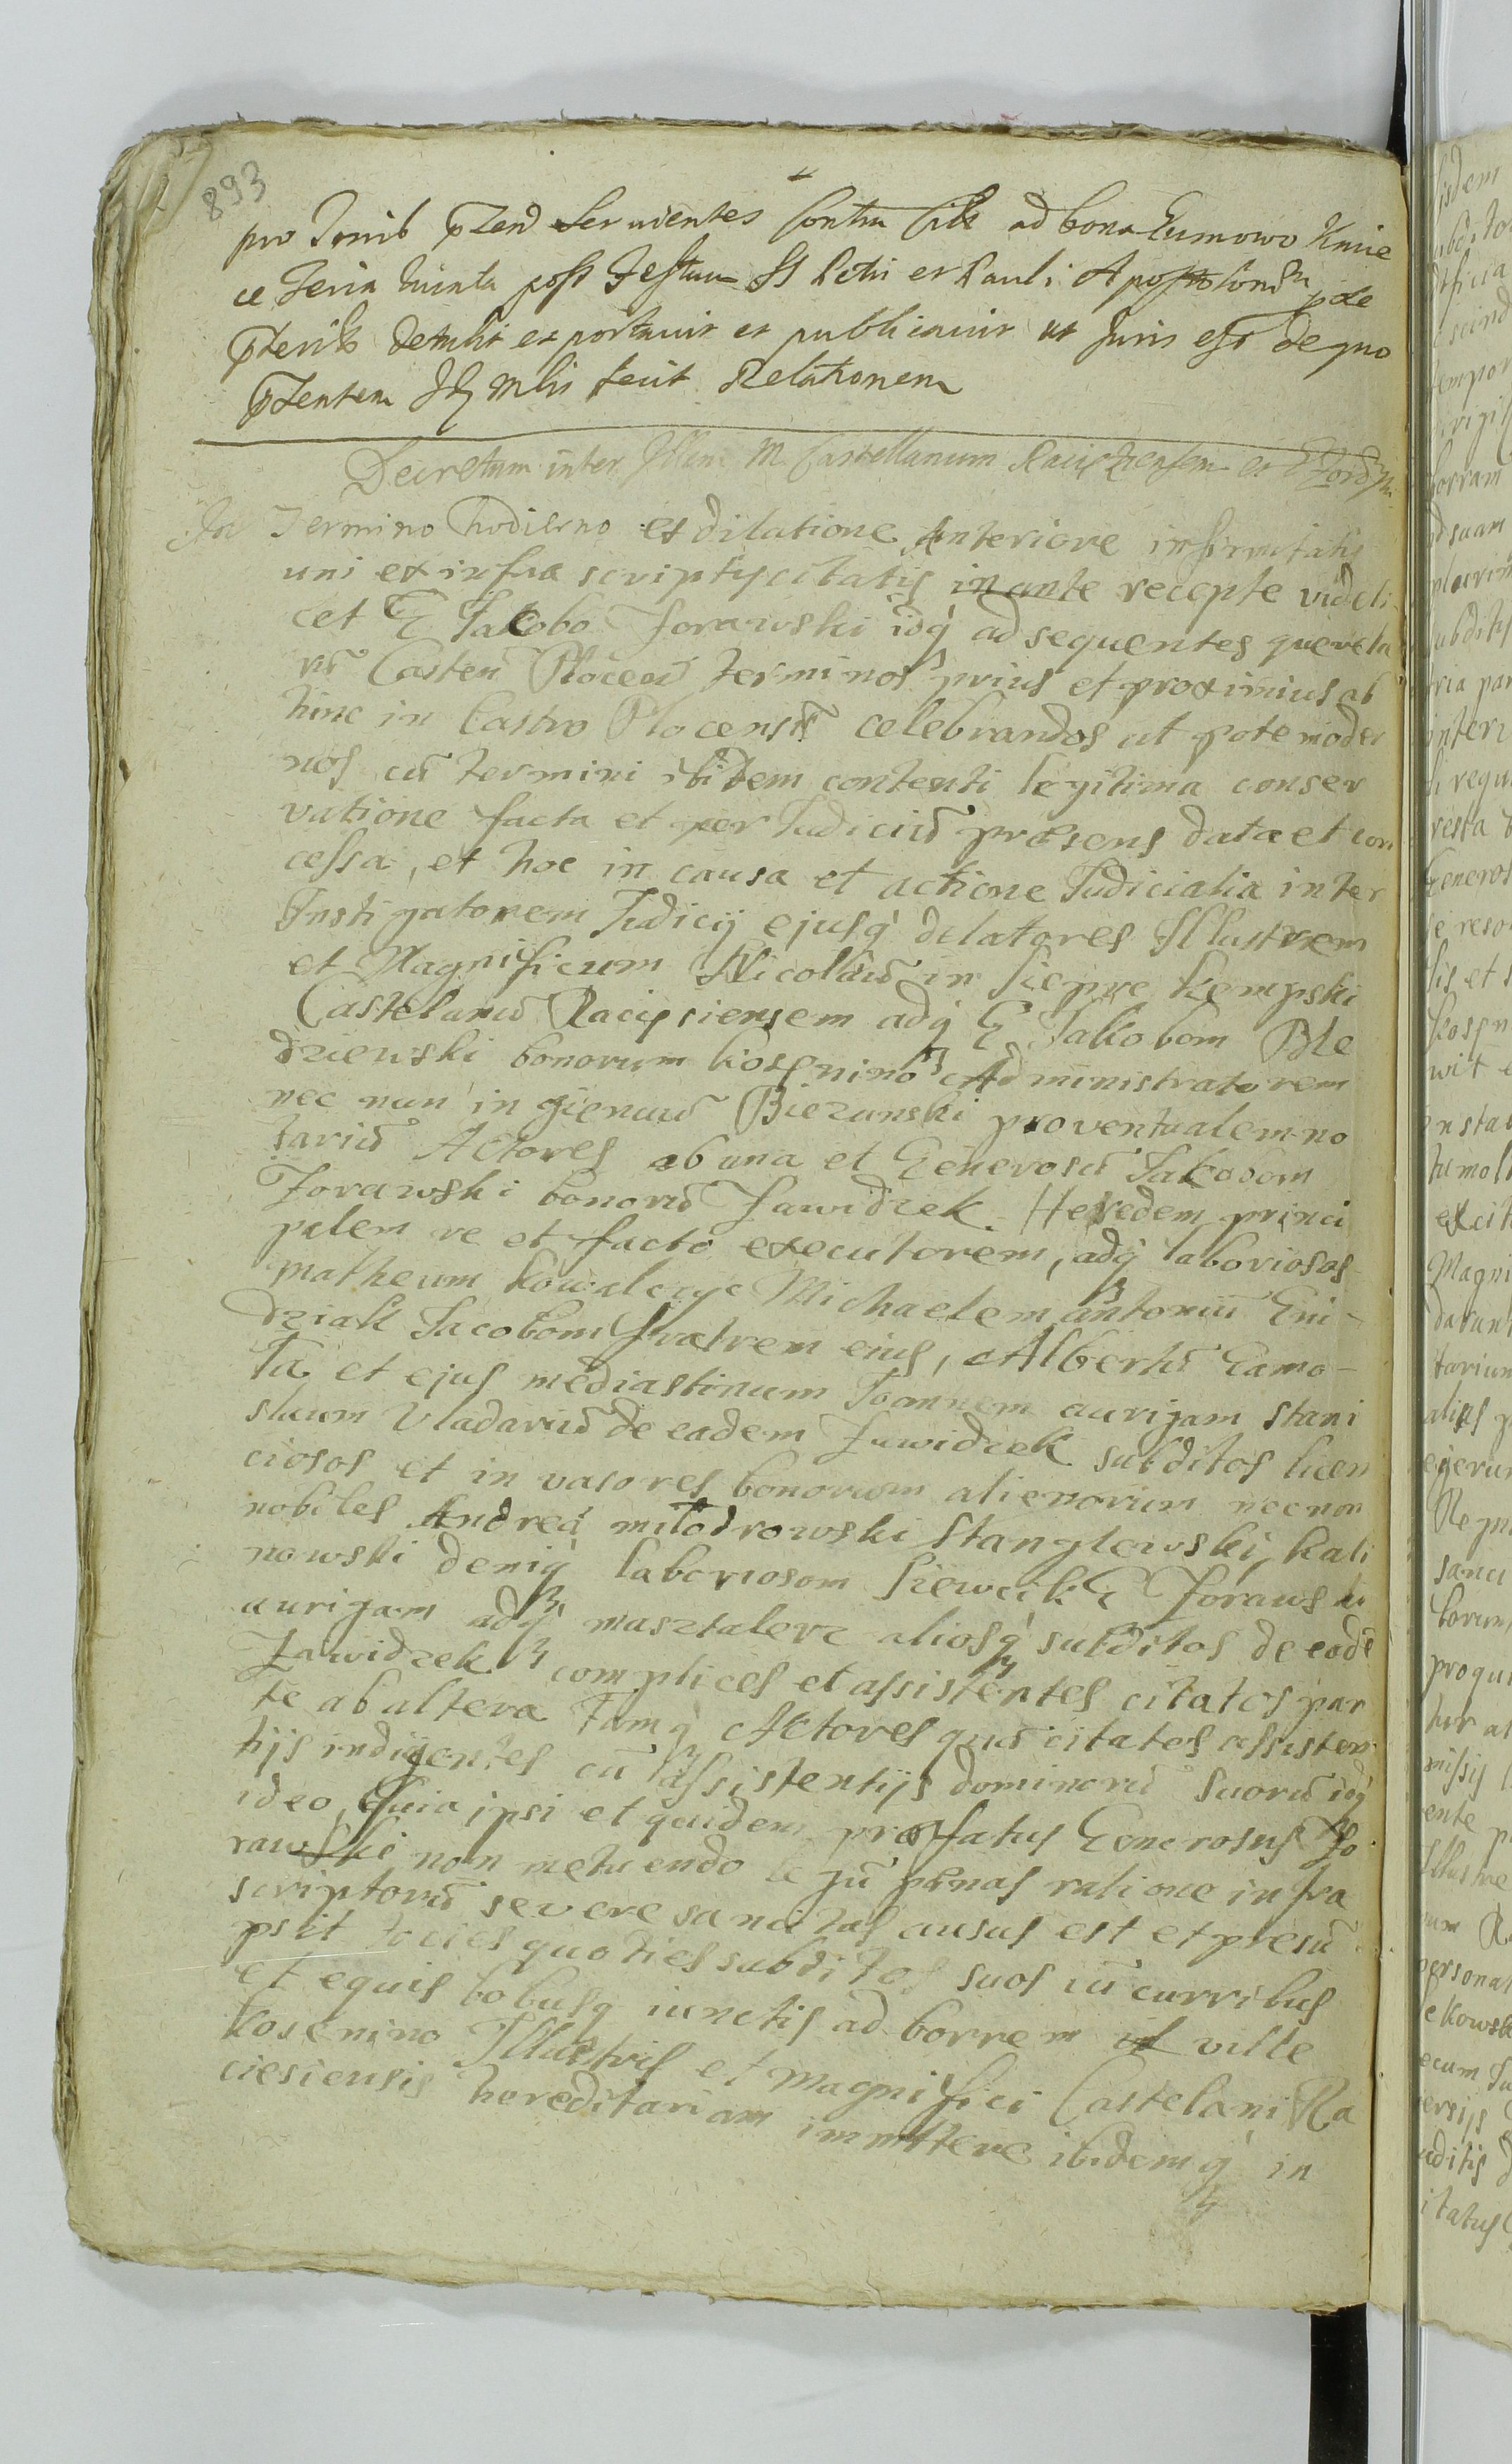 893
pro Termib pzend servientes Contra Citt ad bona Eumowo Knie
ce Feria Quinta post Festum SS Petri et Pauli Apostolorum
pterit detulit et portavit et publicavit ut Juris est de quo
pzentem Idq Mlis fecit Relationem
Decretum inter Illem M. Castellanum Raciązensem et G Zorawski
In Termino hodierno ex dilatione Anteriore infirmitatis
uni ex infra scriptis citatis in ante recepte videli
cet G Jacobo Zorawski idq ad sequentes querela
ru Casten Plocen terminos prius et proximius ab
hinc in Castro Plocensi celebrandos ut pote moder
nos cu termini ibidem contenti legitima conser
vatione facta et per Judiciu præsens data et con
cessa, et hoc in causa et actione Judicialia inter
Instigatorem Judicij ejusq delatores Illustrem
et Magnificum Nicollau in Siepre Kempski
Castelanu Racipsiensem adq G Jakobom Ble
dziewski bonorum Kosenino Administratorem
nec nun in gienuu Biezunski proventualem no
tariu Actores ab una et Generosu Jakobom
Zorawski bonoru Zawidzek Heredem princi
palem re et facto executorem, adq laboriosos
matheum Kowalczyc Michaelem antoniu Gni-
dziak Jacobom fratrem eius, Albertu Gamo-
ta et ejus mediastinum Joannem aurigam Stani
slaum Vladariu de eadem Zawidzek subditos licen
ciosos et in vasores bonorum alienorum necnon
nobiles Andreą miłodrowski Stanglewski, Kali
nowski deniq laboriosom Siewcik G Zorawski
aurigam adq masztalerz aliosq subditos de eade
Zawidzek complices et assistentes citatos par
te ab altera Tamq Actores qua citatos assisten
tijs indigentes cu assistentijs dominoru suoru idq
ideo, Quia ipsi et quidem præfatus Generosus Zo
rawski non metuendo legu pænas ratione infra
scriptoru severe sancitas ausus est et presu
psit toties quoties subditos suos cu curribus
et equis bobusq iunctis ad borrem ville
Kosenino Illustris et Magnifici Castelani Ra
ciesiensis hereditariam immittere ibidemq in